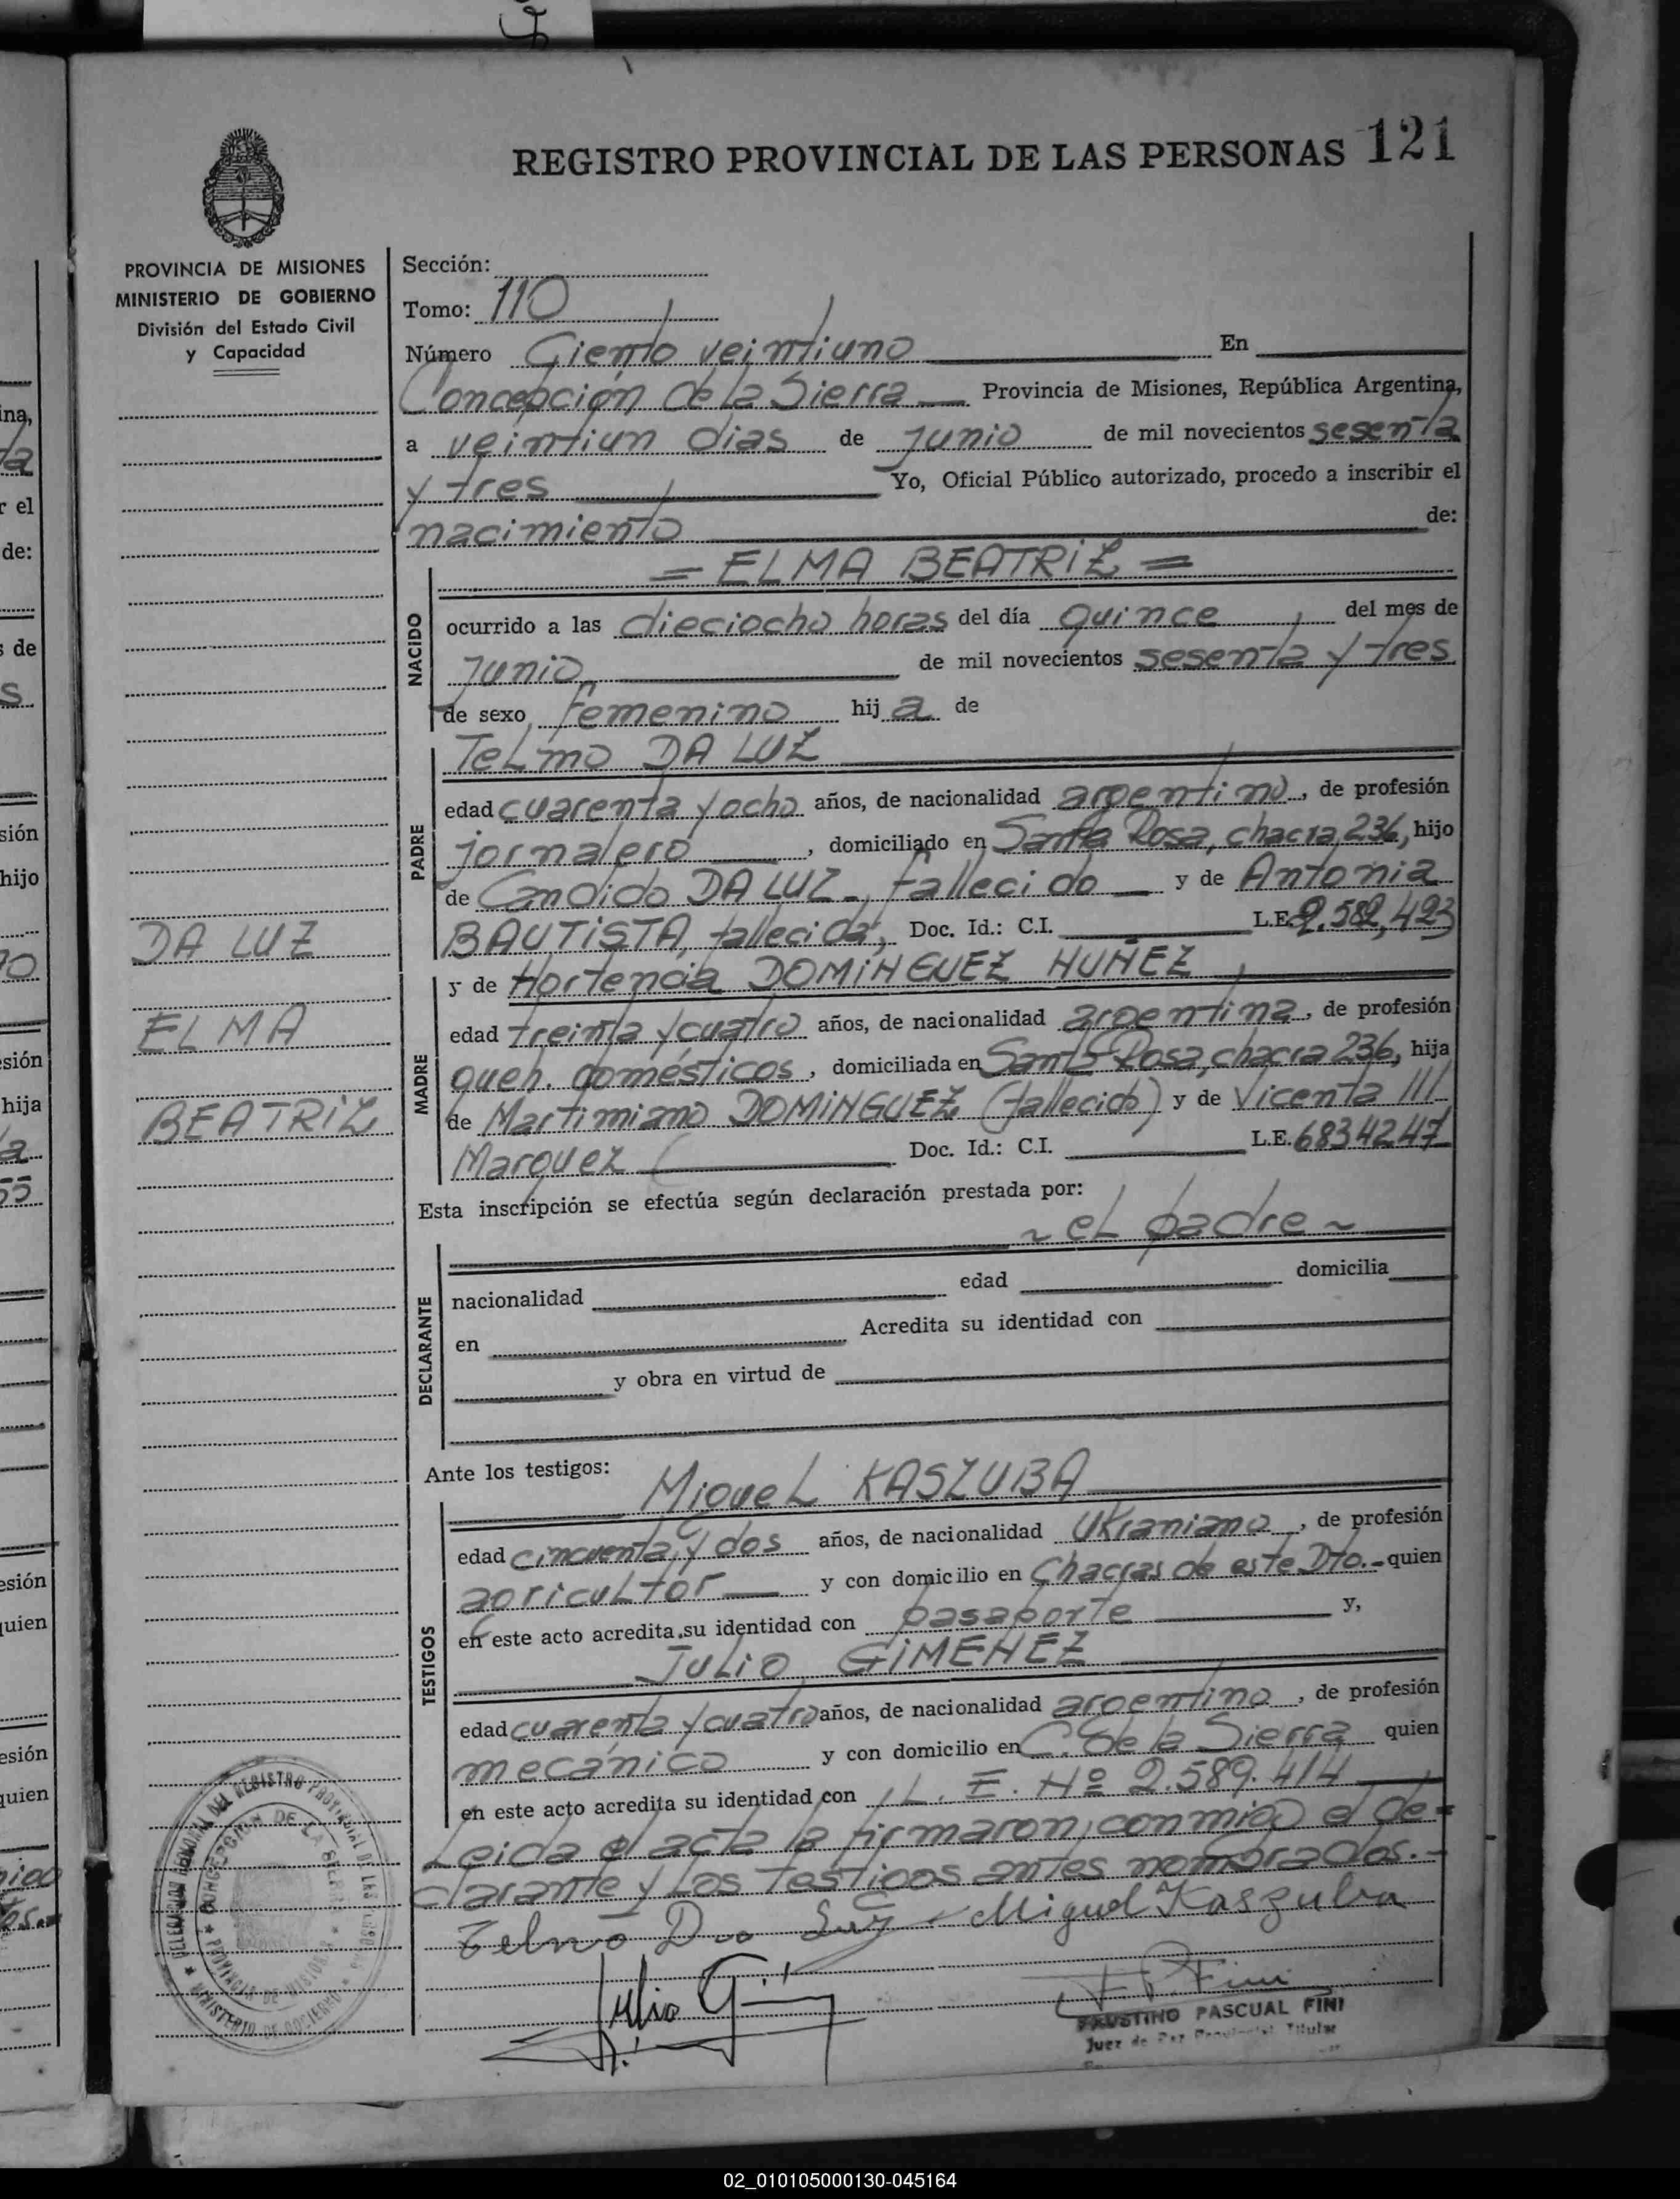 REGISTRO PROVINCIAL DE LAS PERSONAS 121
PROVINCIA DE MISIONES
MINISTERIO DE GOBIERNO
División del Estado Civil
y Capacidad
Sección:
Tomo: 110
Número Ciento veintiuno En
Concepción de la Sierra Provincia de Misiones, República Argentina,
a veintiun dias de junio de mil novecientos sesenta
y tres Yo, Oficial Público autorizado, procedo a inscribir el
nacimiento de:
= ELMA BEATRIZ =
NACIDO
ocurrido a las dieciocho horas del día quince del mes de
junio de mil novecientos sesenta y tres
de sexo femenino hija de
Telmo DA LUZ
PADRE
edad cuarenta y ocho años, de nacionalidad argentino, de profesión
jornalero, domiciliado en Santa Rosa, chacra 236, hijo
de Candido DA LUZ, fallecido y de Antonia
BAUTISTA, fallecida, Doc. Id.: C.I. L.E. 2.582,423
y de Hortencia DOMINGUEZ NUÑEZ
MADRE
edad treinta y cuatro años, de nacionalidad argentina, de profesión
queh. domésticos, domiciliada en Santa Rosa, chacra 236, hija
de Martimiano DOMINGUEZ (fallecido) y de Vicenta
Marquez ( Doc. Id.: C.I. L.E. 6834247
Esta inscripción se efectúa según declaración prestada por:
~ el padre ~
DECLARANTE
nacionalidad edad domicilia
en Acredita su identidad con
y obra en virtud de
Ante los testigos:
Miguel KASZUBA
TESTIGOS
edad cincuenta y dos años, de nacionalidad Ukraniano, de profesión
agricultor y con domicilio en Chacras de este Dto.- quien
en este acto acredita su identidad con pasaporte y,
Julio GIMENEZ
edad cuarenta y cuatro años, de nacionalidad argentino, de profesión
mecánico y con domicilio en C. de la Sierra quien
en este acto acredita su identidad con L. E. Nº 2.589.414
Leida el acta la firmaron conmigo el de=
clarante y los testigos antes nombrados.-
Telmo Da Luz Miguel Kaszuba
Julio G
F P Fini
FAUSTINO PASCUAL FINI
Juez de Paz Provincial Titular
DA LUZ
ELMA
BEATRIZ
DELEGACION REGIONAL DEL REGISTRO PROVINCIAL DE LAS PERSONAS
CONCEPCION DE LA SIERRA
PROVINCIA DE MISIONES
MINISTERIO DE GOBIERNO
02_010105000130-045164